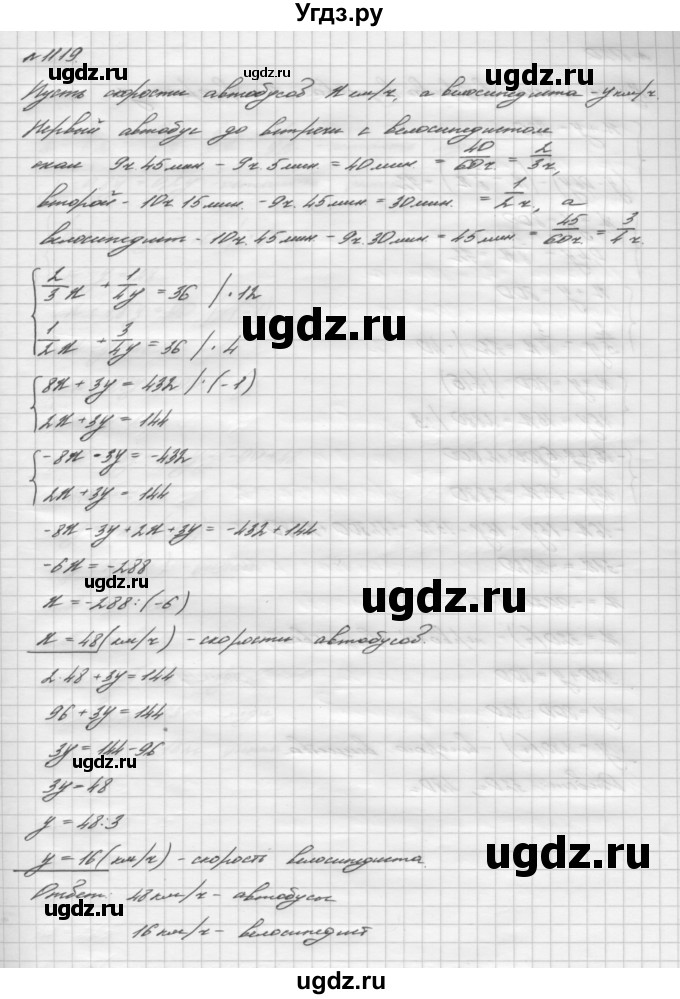 Угдз.ру
№1119.
Пусть скорости автобусов x км/ч, а велосипедиста - y км/ч.
Первый автобус до встречи с велосипедистом
ехал 9ч 45мин - 9ч. 5мин = 40мин = 40/60ч = 2/3ч,
второй - 10ч 15мин. - 9ч. 45мин = 30мин. = 1/2ч, а
велосипедист - 10ч. 45мин - 9ч. 30мин = 45мин = 45/60ч = 3/4ч.
2/3x + 1/4y = 36 | · 12
1/2x + 3/4y = 36 | · 4
ugdz.ru
8x + 3y = 432 | · (-1)
2x + 3y = 144
ugdz.ru
-8x - 3y = -432
2x + 3y = 144
-8x - 3y + 2x + 3y = -432 + 144
-6x = -288
ugdz.ru
x = -288 : (-6)
ugdz.ru
x = 48 (км/ч) - скорости автобусов.
2·48 + 3y = 144
96 + 3y = 144
3y = 144 - 96
ugdz.ru
3y = 48
y = 48 : 3
y = 16 (км/ч) - скорость велосипедиста.
ugdz.ru
Ответ: 48км/ч - автобусы
ugdz.ru
16км/ч - велосипедист
ugdz.ru